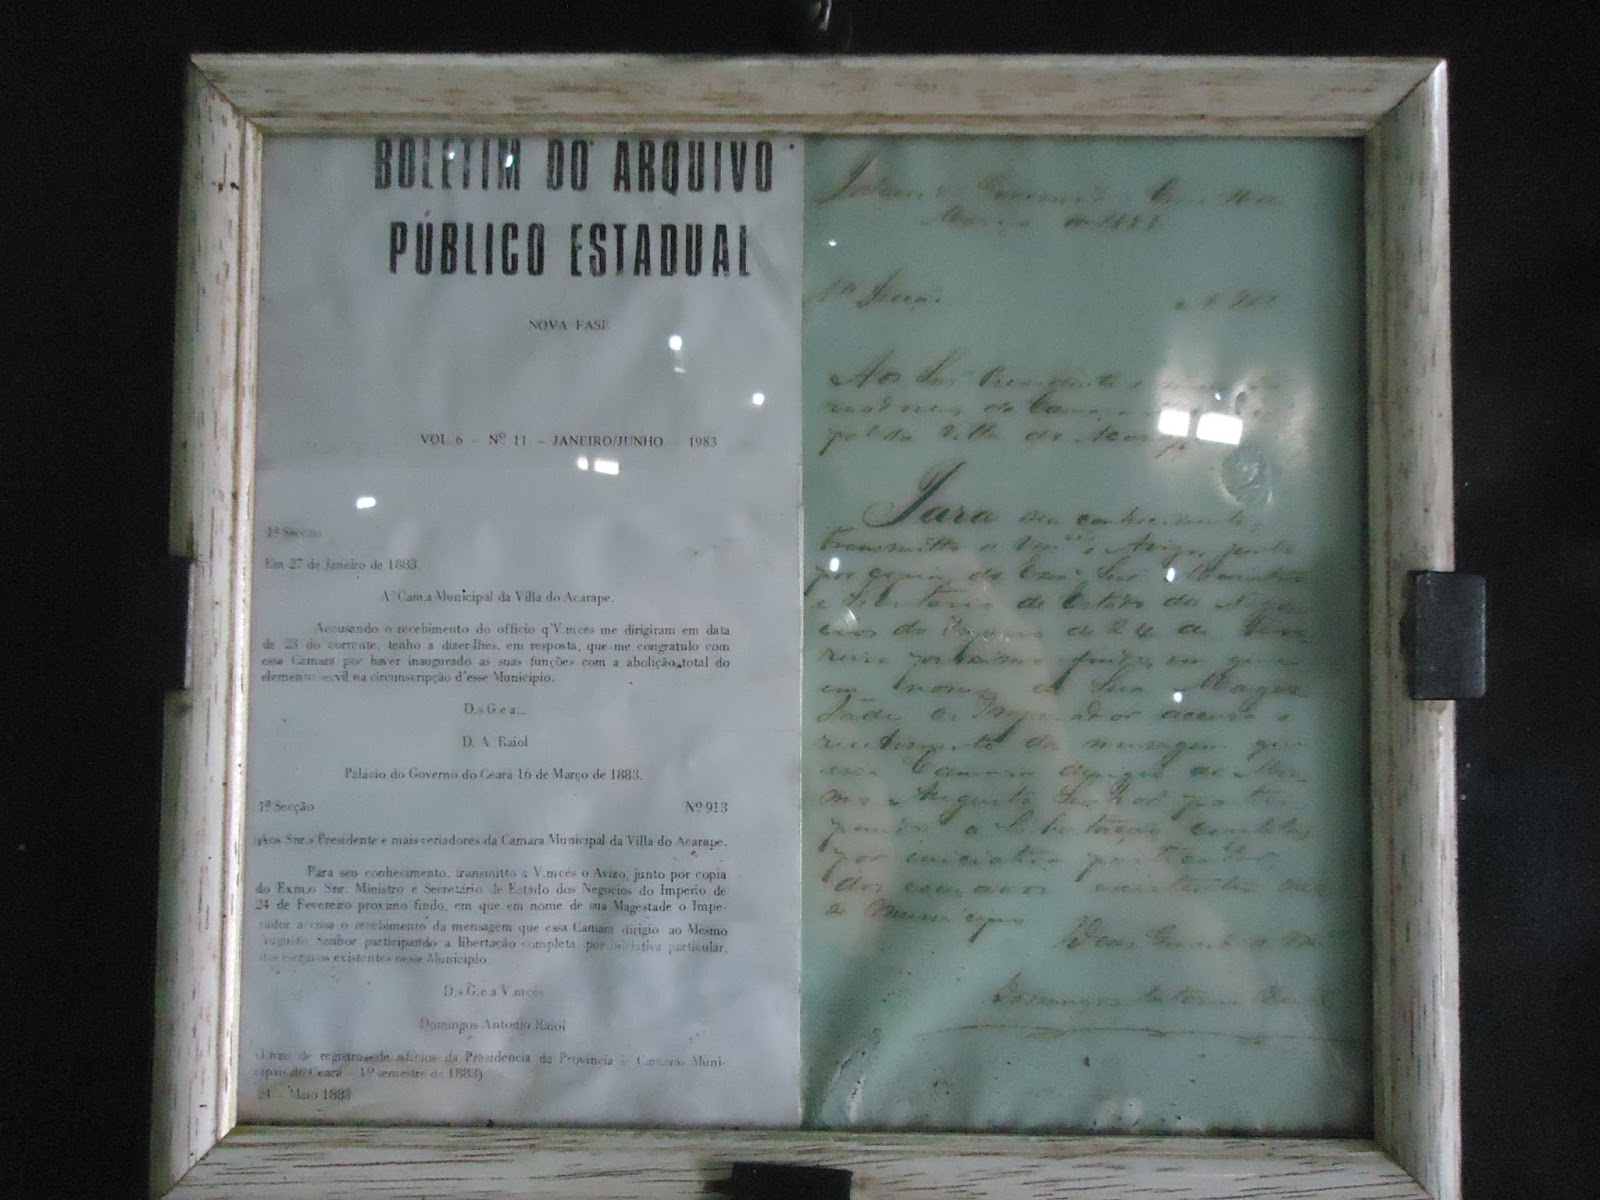 BOLETIM DO ARQUIVO
PÚBLICO ESTADUAL
NOVA FASE
VOL 6 - Nº 11 - JANEIRO/JUNHO - 1983
1ª Secção
Em 27 de Janeiro de 1883
A Cam.a Municipal da Villa do Acarape.
Accusando o recebimento do officio q'V.mcês me dirigiram em data
de 23 do corrente, tenho a dizer-lhes, em resposta, que me congratulo com
essa Camara por haver inaugurado as suas funções com a abolição total do
elemento servil na circunscripção d'esse Municipio.
D.s G. e a...
D. A. Raiol
Palácio do Governo do Ceará 16 de Março de 1883.
1ª Secção Nº 913
Aos Snr.s Presidente e mais veriadores da Camara Municipal da Villa do Acarape.
Para seu conhecimento, transmitto a V.mcês o Avizo, junto por copia
do Exm.o Snr. Ministro e Secretário de Estado dos Negocios do Imperio de
24 de Fevereiro proximo findo, em que em nome de sua Magestade o Impe-
rador accusa o recebimento da mensagem que essa Camara dirigio ao Mesmo
Augusto Senhor participando a libertação completa, por iniciativa particular,
dos escravos existentes nesse Municipio
D.s G. e a V.mcês
Domingos Antonio Raiol
(Livro de registro de oficios da Presidencia da Provincia à Camaras Muni-
cipais do Ceará - 1º semestre de 1883)
24 - Maio 1883
Março de 1883
1ª Secção
Aos Snrs Presidente e
readores da Camara
pal da Villa do Acarape
Para seu conhecimento,
transmitto a Vmcês o Avizo, junto
por copia, do Exmo Snr Ministro
e Secretario de Estado dos Nego
cios do Imperio de 24 de Feve
reiro proximo findo, em que
em nome de Sua Mages
tade o Imperador accusa o
recebimento da mensagem que
essa Camara dirigio ao Mes
mo Augusto Senhor partici
pando a libertação completa,
por iniciativa particular
dos escravos existentes nes
se Municipio
Deus Guarde a Vmcês
Domingos Antonio Raiol